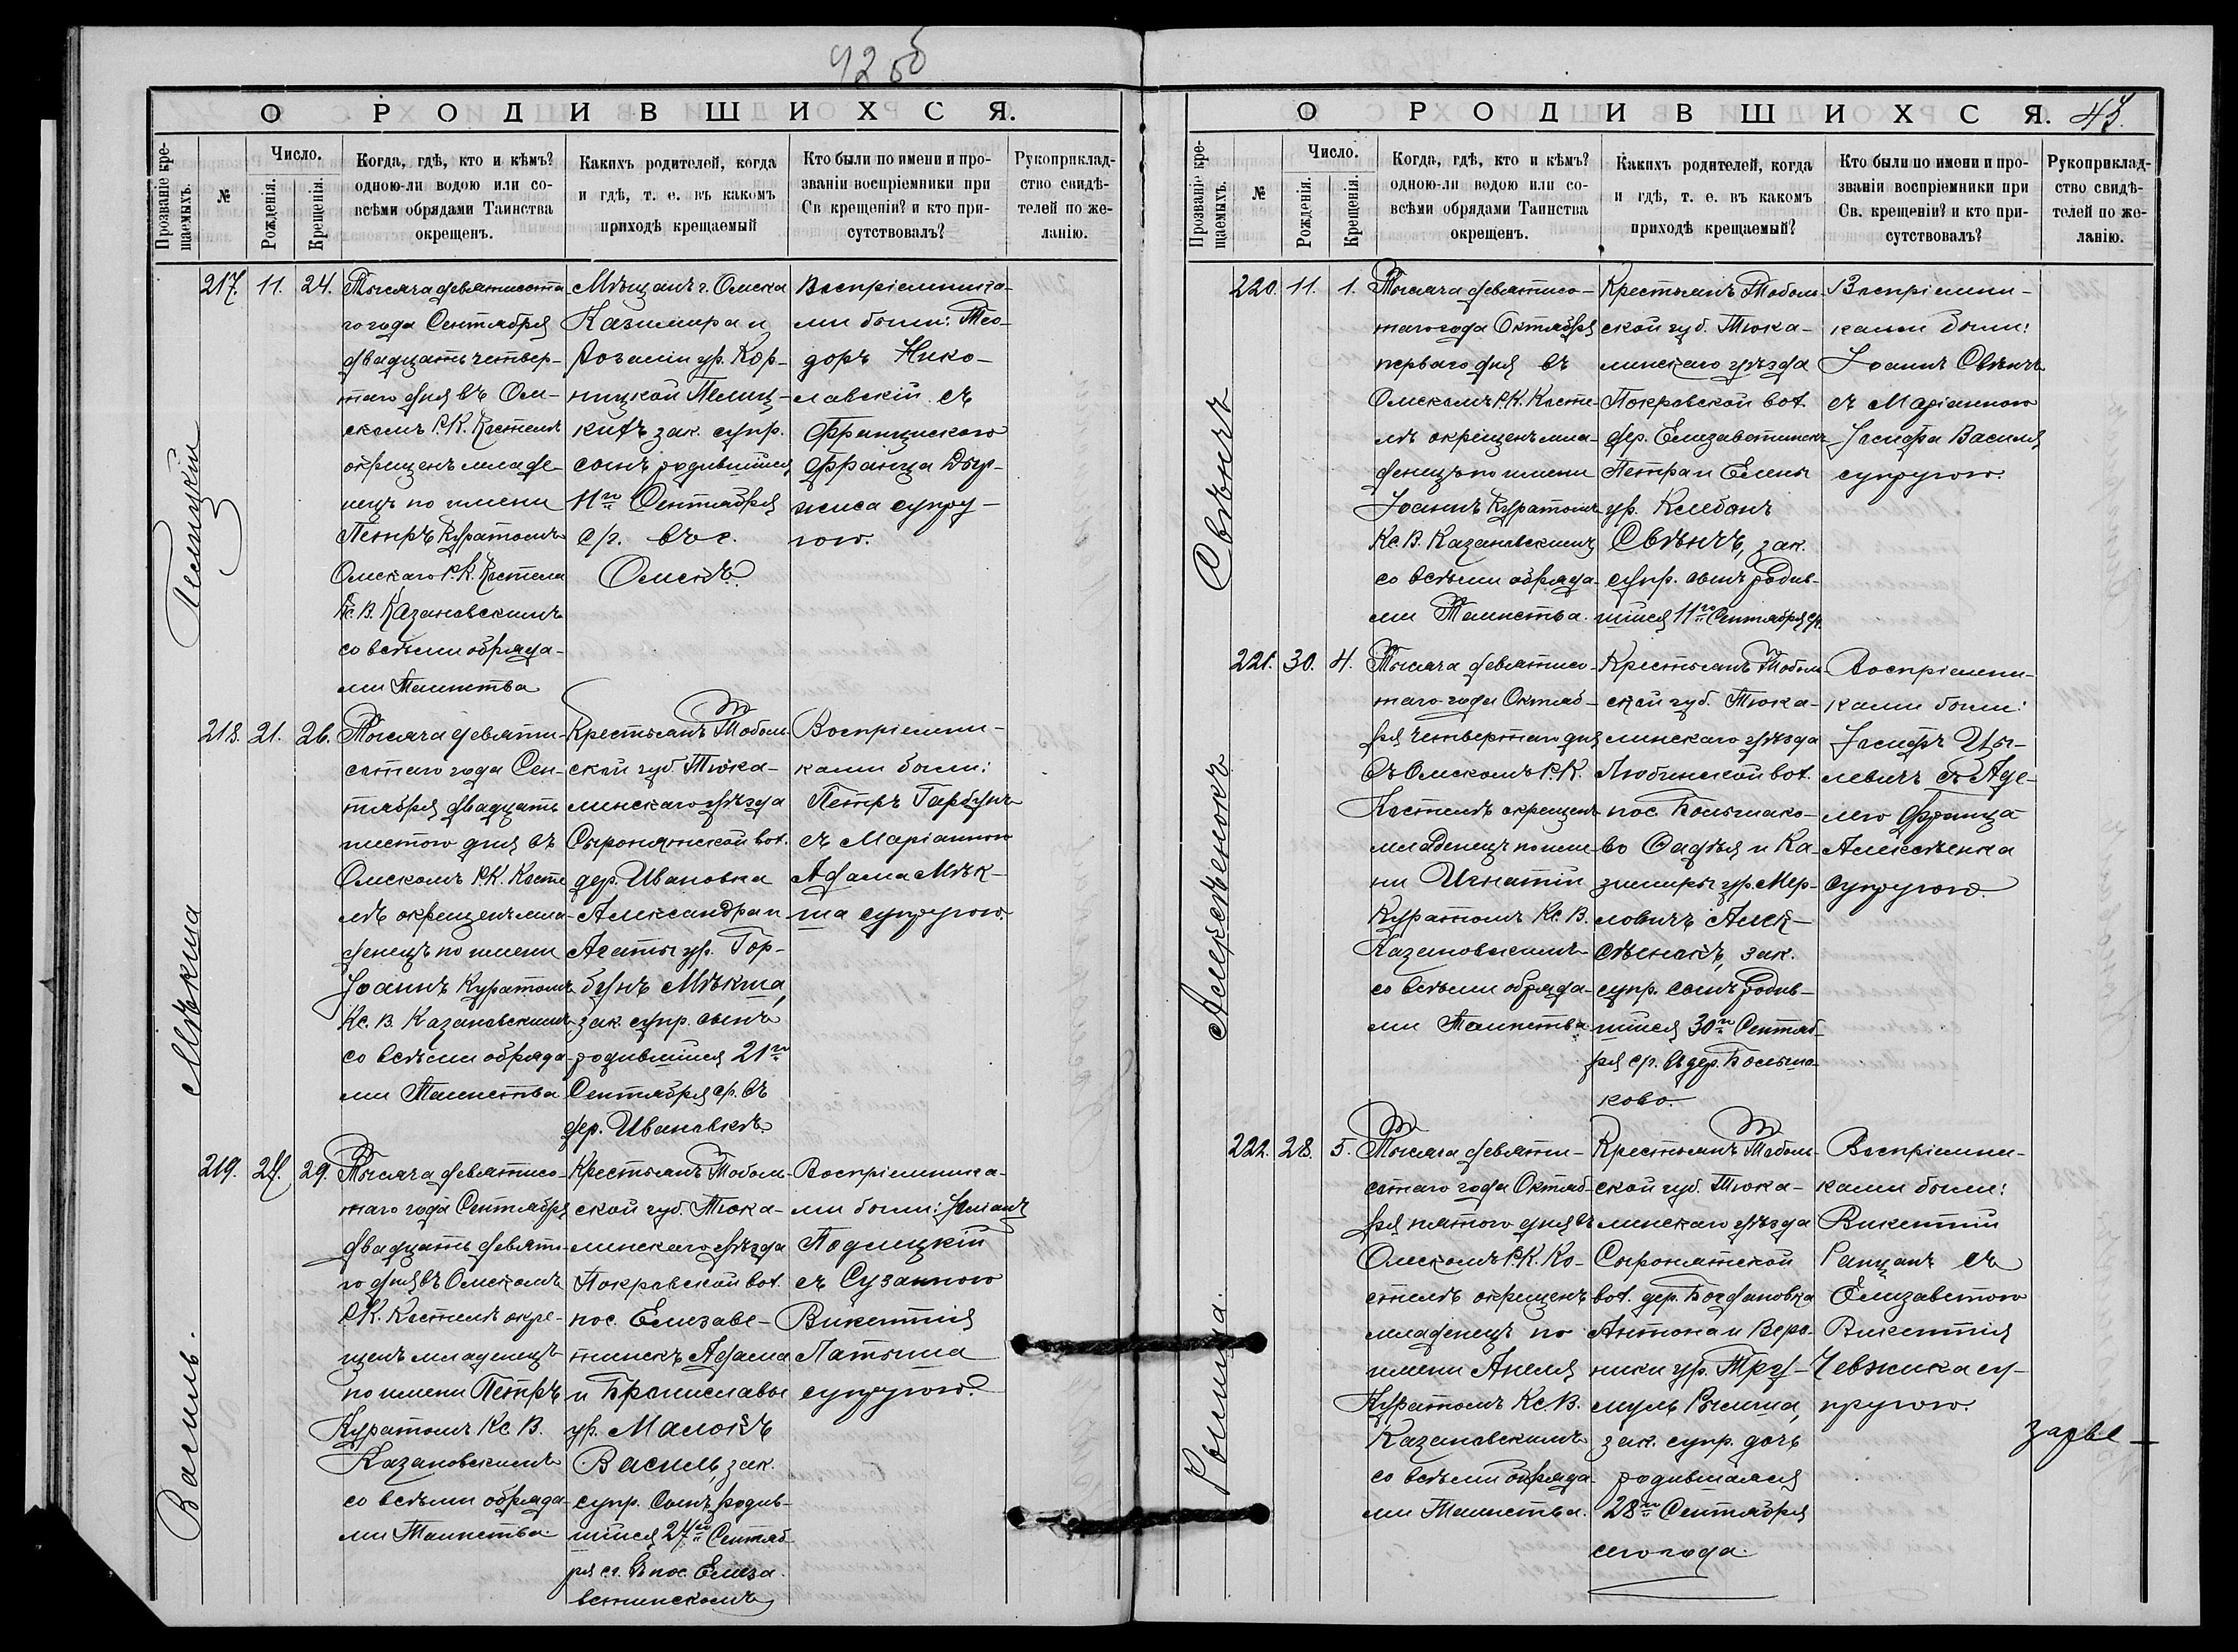 92 об
О РОДИВШИХСЯ.
Прозваніе кре-
щаемыхъ.
№
Число.
Рожденія.
Крещенія.
Когда, гдѣ, кто и кѣмъ?
одною-ли водою или со-
всѣми обрядами Таинства
окрещенъ.
Какихъ родителей, когда
и гдѣ, т. е. въ какомъ
приходѣ крещаемый
Кто были по имени и про-
званіи воспріемники при
Св крещеніи? и кто при-
сутствовалъ?
Рукоприклад-
ство свидѣ-
телей по же-
ланію.
217. 11. 24.
Тысяча девятисота-
го года Сентября
двадцать четвер-
таго дня въ Ом-
скомъ Р.К. Костелѣ
окрещенъ младе-
нецъ по имени
Петръ Куратомъ
Омскаго Р.К. Костела
Кс. В. Казановскимъ
со всѣми обряда-
ми Таинства
Мѣщанъ г. Омска
Казимира и
Розаліи ур. Кор-
ницкой
зак. супр.
сынъ родившійся
11го Сентября
с/г. въ г.
Омскѣ.
Воспріемника-
ми были: Тео-
доръ Нико-
лавскій съ
Францискою
Франца
супру-
гою.
218. 21. 26.
Мѣкша
Тысяча девяти-
сотаго года Сен-
тября двадцать
шестого дня въ
Омскомъ Р.К. Косте
лѣ окрещенъ мла-
денецъ по имени
Іоаннъ Куратомъ
Кс. В. Казановскимъ
со всѣми обряда-
ми Таинства
Крестьянъ Тоболь-
ской губ. Тюка-
линскаго уѣзда
Сыропятской вол.
дер. Ивановка
Александра и
Агаты ур. Гор-
бунъ Мѣкша,
зак. супр. сынъ
родившійся 21го
Сентября с/г. въ
дер. Ивановкѣ.
Воспріемни-
ками были:
Петръ Гарбунъ
съ Маріанною
Адама Мѣк-
ша супругою.
219. 27. 29.
Василь.
Тысяча девятисо-
таго года Сентября
двадцать девята-
го дня въ Омскомъ
Р.К. Костелѣ окре-
щенъ младенецъ
по имени Петръ
Куратомъ Кс В.
Казановскимъ
со всѣми обряда-
ми Таинства.
Крестьянъ Тоболь-
ской губ. Тюка-
линскаго уѣзда
Покровской вол.
пос. Елизаве-
тинскъ Адама
и Брониславы
ур. Малокъ
Василь зак.
супр. сынъ родив-
шійся 27го Сентяб-
ря с.г. въ пос. Елиза
ветинскомъ
Воспріемника-
ми были: Юліанъ
Подлицкій
съ Сузанною
Викентія
Латыша
супругою.
О РОДИВШИХСЯ. 43.
Прозваніе кре-
щаемыхъ.
№
Число.
Рожденія.
Крещенія.
Когда, гдѣ, кто и кѣмъ?
одною-ли водою или со-
всѣми обрядами Таинства
окрещенъ.
Какихъ родителей, когда
и гдѣ, т. е. въ какомъ
приходѣ крещаемый?
Кто были по имени и про-
званіи воспріемники при
Св. крещеніи? и кто при-
сутствовалъ?
Рукоприклад-
ство свидѣ-
телей по же-
ланію.
220. 11. 1.
Свѣнчъ
Тысяча девятисо-
таго года Октября
перваго дня въ
Омскомъ Р.К. Косте-
лѣ окрещенъ мла-
денецъ по имени
Іоаннъ Куратомъ
Кс. В. Казановскимъ
со всѣми обряда-
ми Таинства.
Крестьянъ Тоболь-
ской губ. Тюка-
линскаго уѣзда
Покровской вол.
дер. Елизаветинскъ
Петра и Елены
ур. Клебанъ
Свѣнчъ, зак.
супр. сынъ родив-
шійся 11го Сентября с/г.
Воспріемни-
ками были:
Іоаннъ Свѣнчъ
съ Маріанною
Іосифа Василя
супругою.
221. 30. 4.
Алексѣенокъ
Тысяча девятисо-
таго года Октяб-
ря четвертаго дня
въ Омскомъ Р.К.
Костелѣ окрещенъ
младенецъ по име-
ни Игнатій
Куратомъ Кс. В.
Казановскимъ
со всѣми обряда-
ми Таинства.
Крестьянъ Тоболь-
ской губ. Тюка-
линскаго уѣзда
Любинской вол.
пос. Большако-
во Фадѣя и Ка-
зимиры ур. Мер-
ловичъ Алек-
сѣенокъ, зак.
супр. сынъ родив-
шійся 30го Сентяб-
ря с/г. въ дер. Больша-
ково.
Воспріемни-
ками были:
Іосифъ Цы-
левичъ съ Аде-
лею Франца
Алексѣенка
супругою.
222. 28. 5.
Рыкша.
Тысяча девяти-
сотаго года Октяб-
ря пятого дня въ
Омскомъ Р.К. Ко-
стелѣ окрещенъ
младенецъ по
имени Анеля
Куратомъ Кс. В.
Казановскимъ
со всѣми обряда-
ми Таинства.
Крестьянъ Тоболь-
ской губ. Тюка-
линскаго уѣзда
Сыропятской
вол. дер. Богдановка
Антона и Веро-
ники ур.
зак. супр. дочь
родившаяся
28го Сентября
сего года.
Воспріемни-
ками были:
Викентій
Рапцанъ съ
Елизаветою
Викентія
су-
пругою.